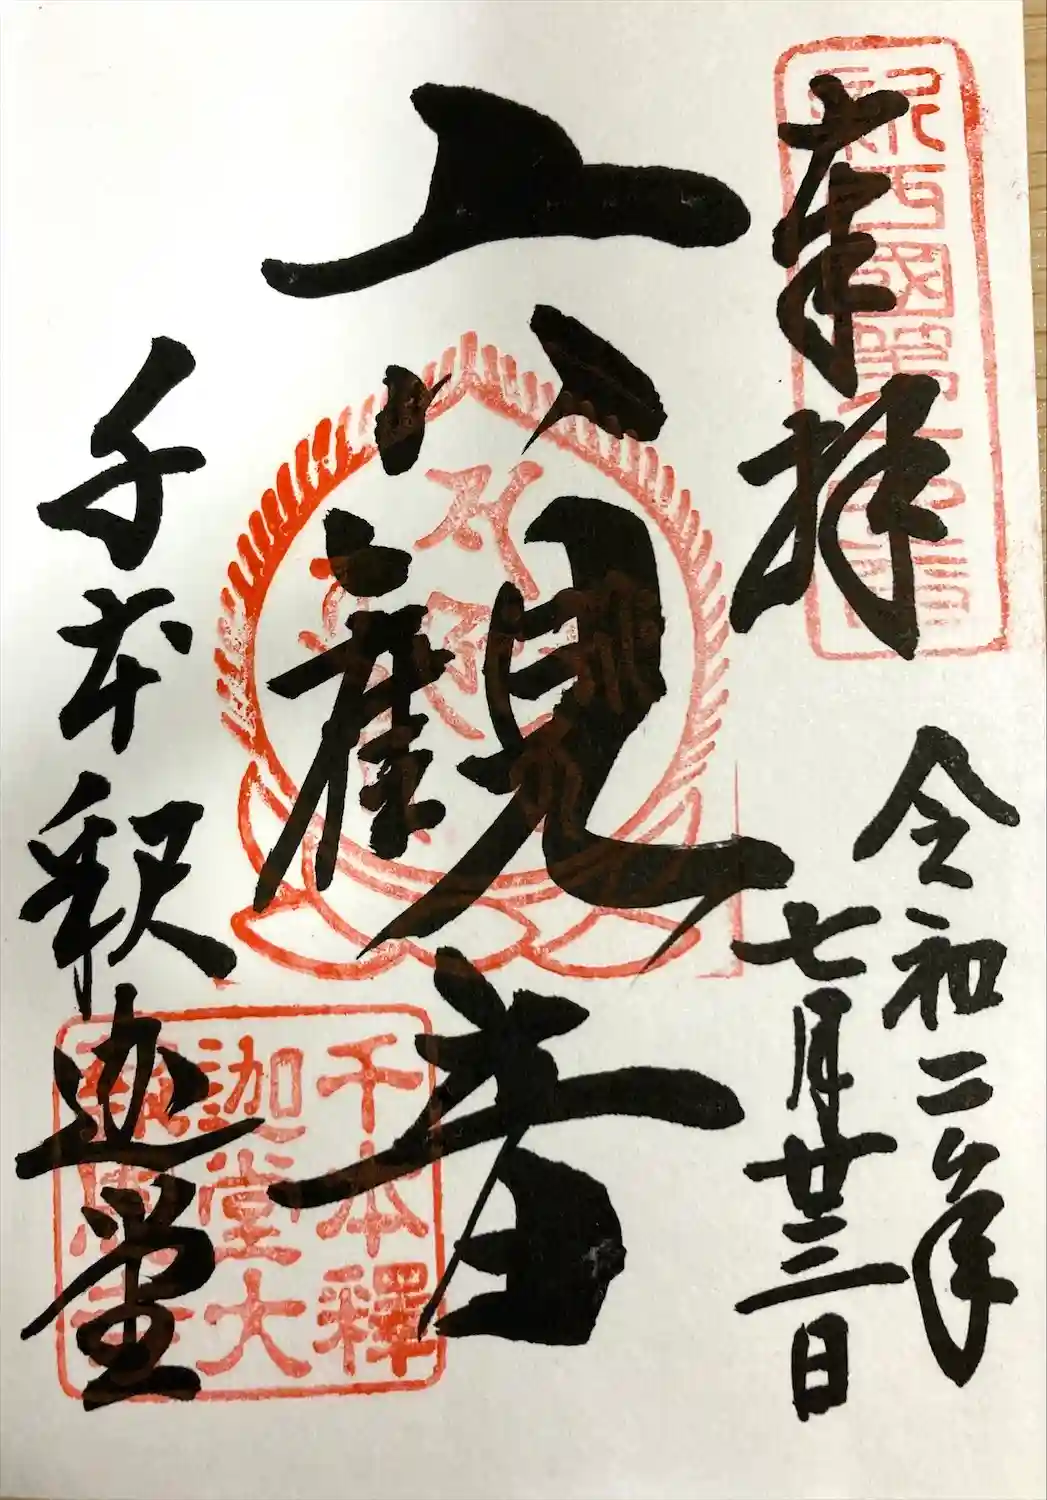 奉拝
令和二年
七月廿三日
六観音
千本釈迦堂
新西國第十六番
千本釋
迦堂大
報恩寺